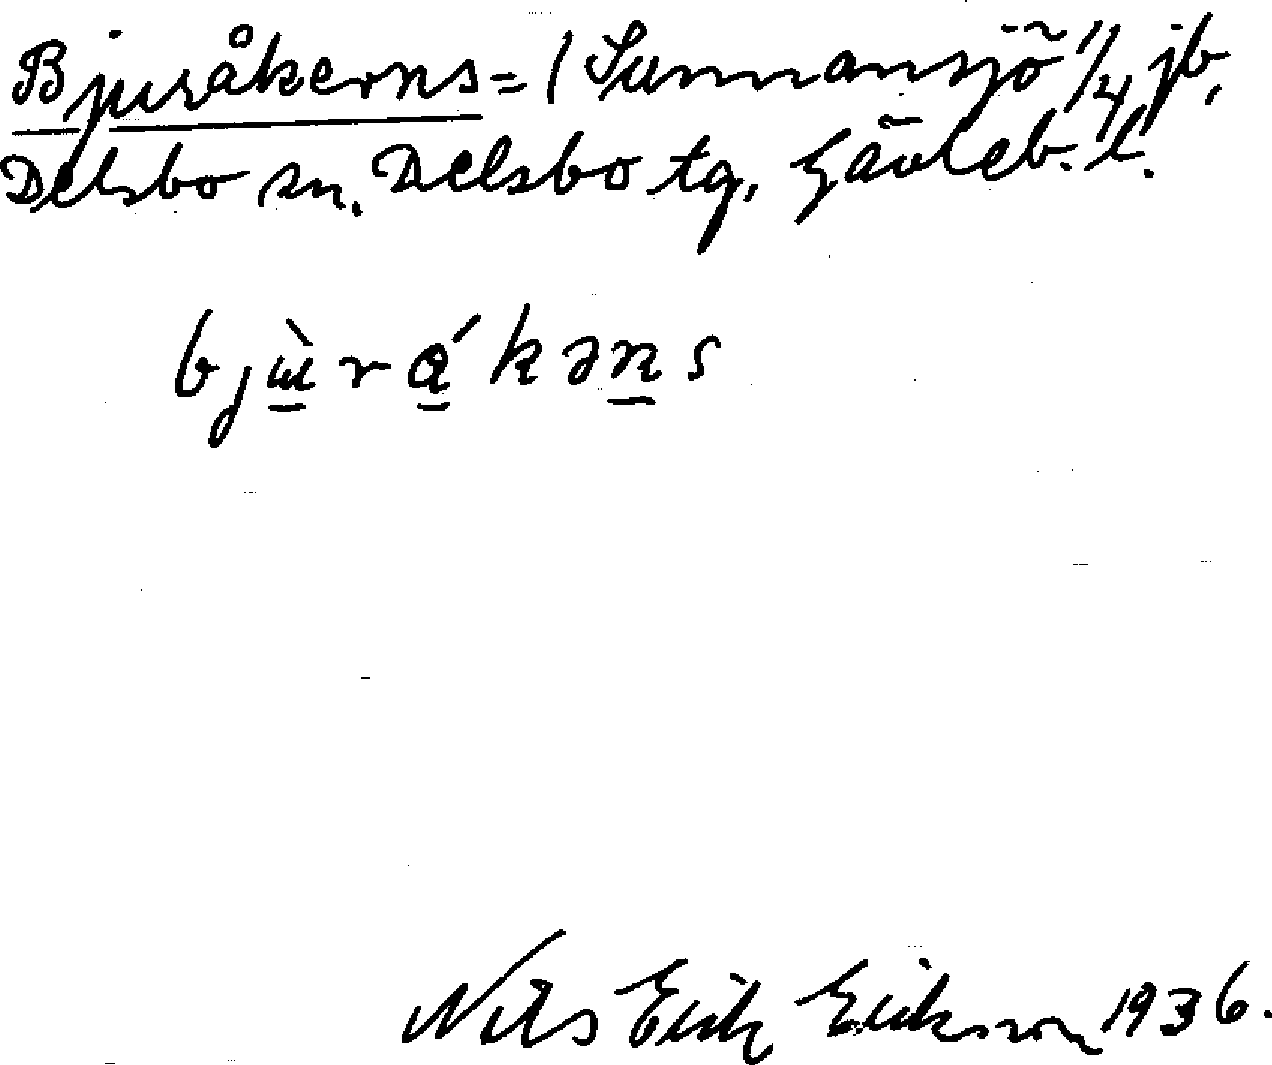 Bjuråkerns = (Sunnansjö 1/4 jb,
Delsbo sn. Delsbo tg, Gävleb. l.
bjùrákəns
Nils Erik Erikson 1936.